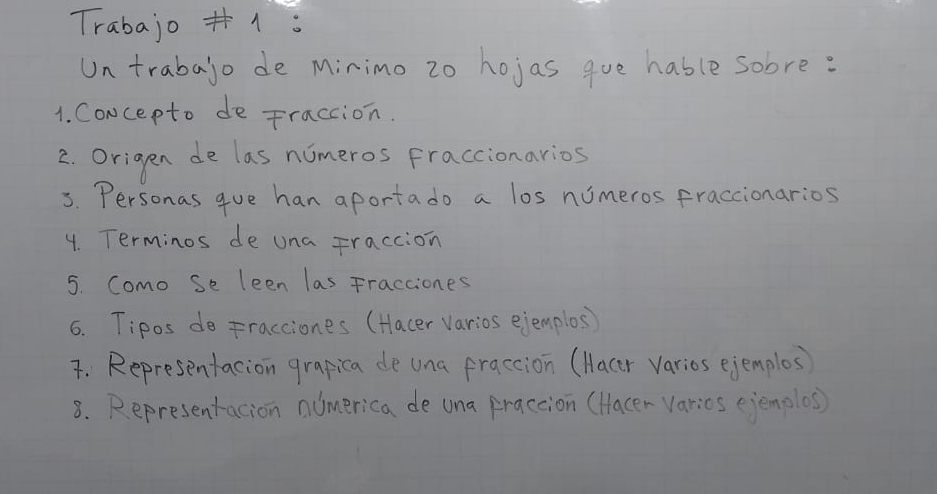 Trabajo # 1 :
Un trabajo de Minimo 20 hojas que hable sobre :
1. Concepto de Fracción.
2. Origen de las números Fraccionarios
3. Personas que han aportado a los números Fraccionarios
4. Terminos de una Fracción
5. Como Se leen las Fracciones
6. Tipos de Fracciones (Hacer varios ejemplos)
7. Representación grafica de una fracción (Hacer varios ejemplos)
8. Representación númerica de una fracción (Hacer varios ejemplos)